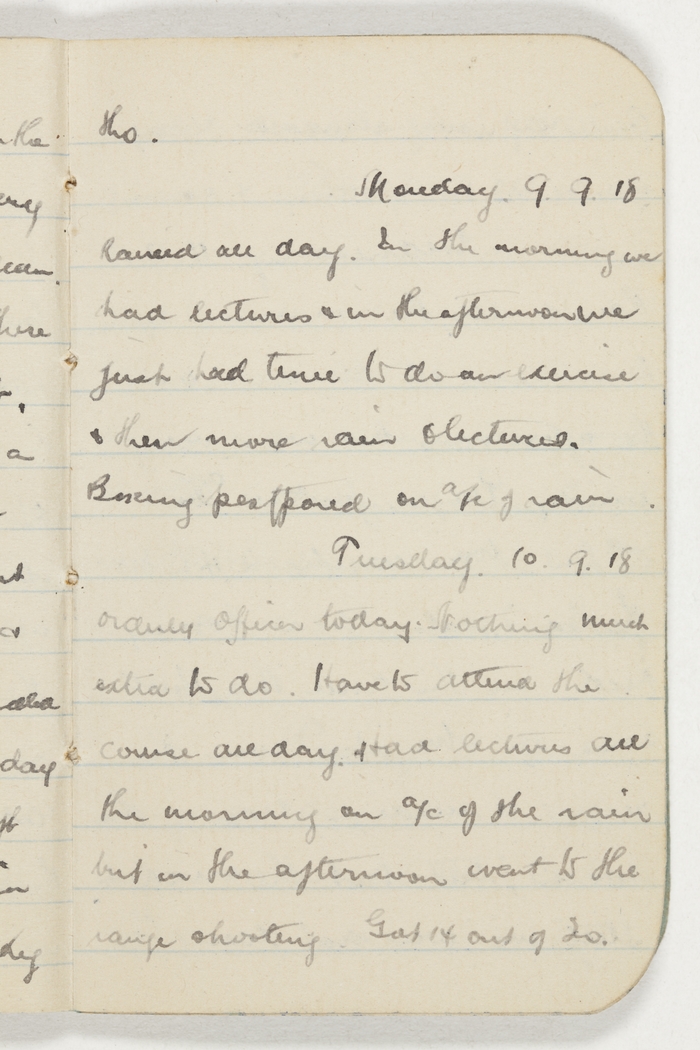 tho.
Monday. 9. 9. 18
Rained all day. In the morning we
had lectures & in the afternoon we
just had time to do an exercise
& then more rain & lectures.
Boxing postponed on a/c of rain.
Tuesday. 10. 9. 18
Orderly Officer today. Nothing much
extra to do. Have to attend the
course all day. Had lectures all
the morning on a/c of the rain
but in the afternoon went to the
range shooting. Got 14 out of 20.